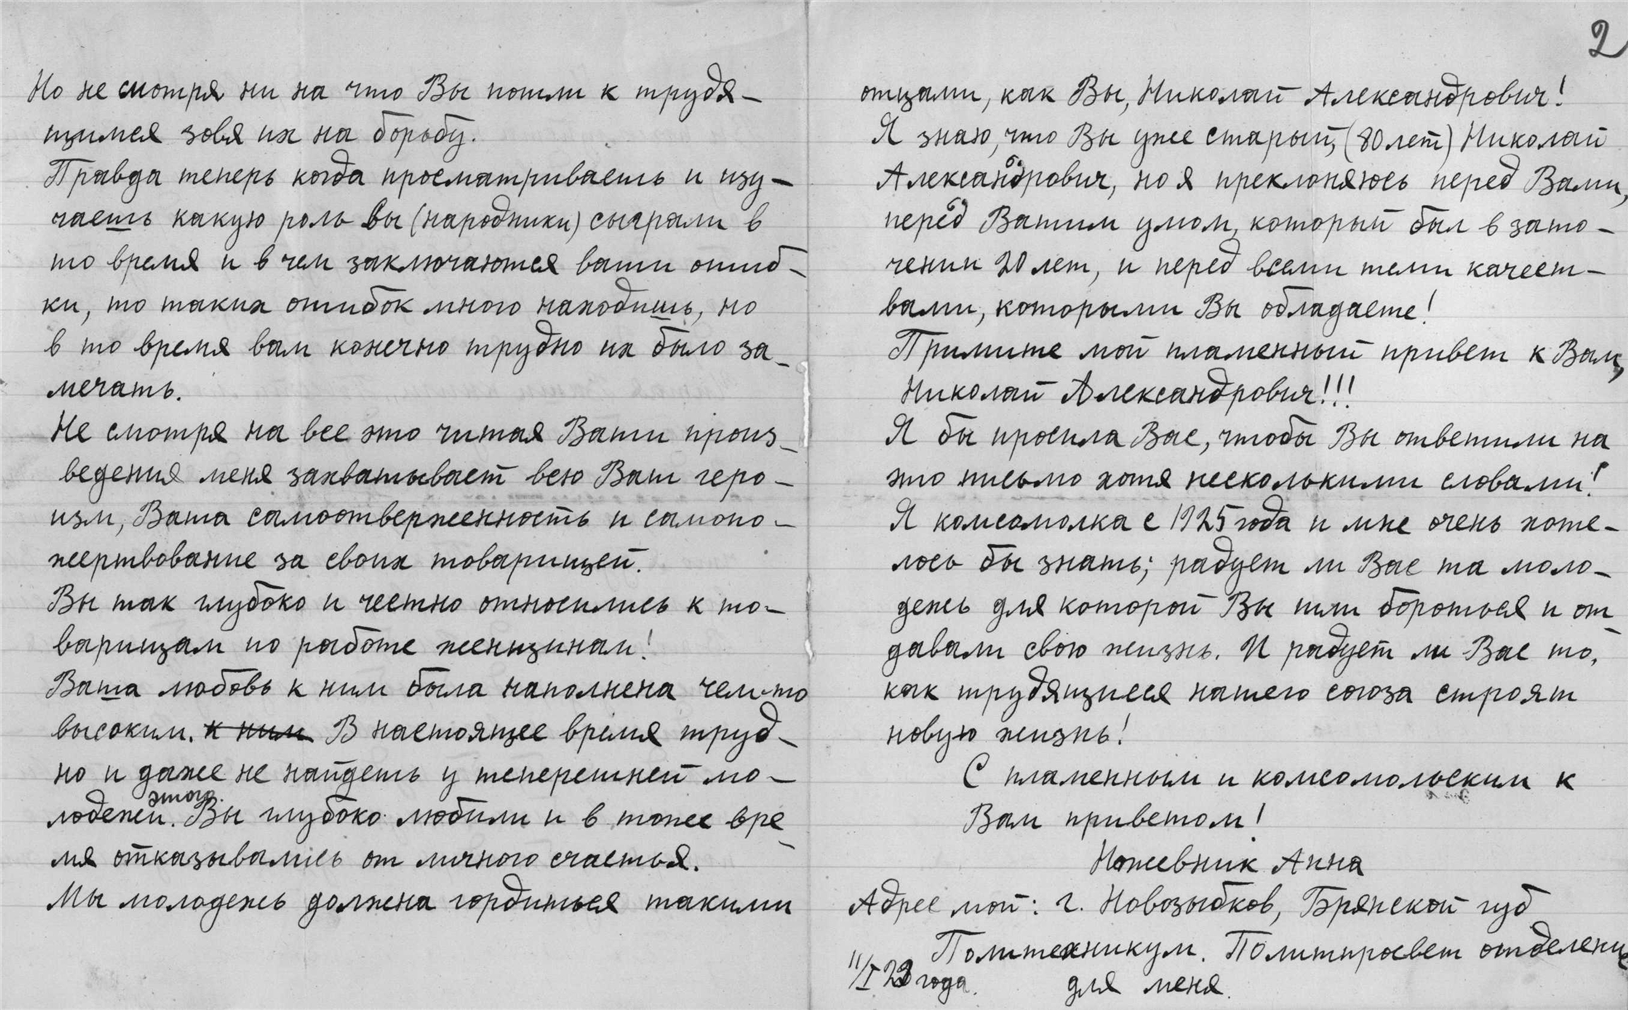 Но не смотря ни на что Вы пошли к трудя-
щимся зовя их на борьбу.
Правда теперь когда просматриваешь и изу-
чаешь какую роль вы (народники) сыграли в
то время и в чем заключаются ваши ошиб-
ки, то таких ошибок много находишь, но
в то время вам конечно трудно их было за-
мечать.
Не смотря на все это читая Ваши произ-
ведения меня захватывает всю Ваш геро-
изм, Ваша самоотверженность и самопо-
жертвование за своих товарищей.
Вы так глубоко и честно относились к то-
варищам по работе женщинам!
Ваша любовь к ним была наполнена чем-то
высоким. к ним В настоящее время труд-
но и даже не найдешь у теперешней мо-
этого
лодежи. Вы глубоко любили и в тоже вре-
мя отказывались от личного счастья.
Мы молодежь должна гордиться такими
2
отцами, как Вы, Николай Александрович!
Я знаю, что Вы уже старый, (80 лет) Николай
Александрович, но я преклоняюсь перед Вами,
перед Вашим умом, который был в зато-
чении 20 лет, и перед всеми теми качест-
вами, которыми Вы обладаете!
Примите мой пламенный привет к Вам,
Николай Александрович!!!
Я бы просила Вас, чтобы Вы ответили на
это письмо хотя несколькими словами!
Я комсомолка с 1925 года и мне очень хоте-
лось бы знать; радует ли Вас та моло-
дежь для которой Вы шли бороться и от
давали свою жизнь. И радует ли Вас то,
как трудящиеся нашего союза строят
новую жизнь!
С пламенным и комсомольским к
Вам приветом!
Ножевник Анна
Адрес мой: г. Новозыбков, Брянской губ
Политехникум. Политпросвет отделение
11/I года.
для меня.